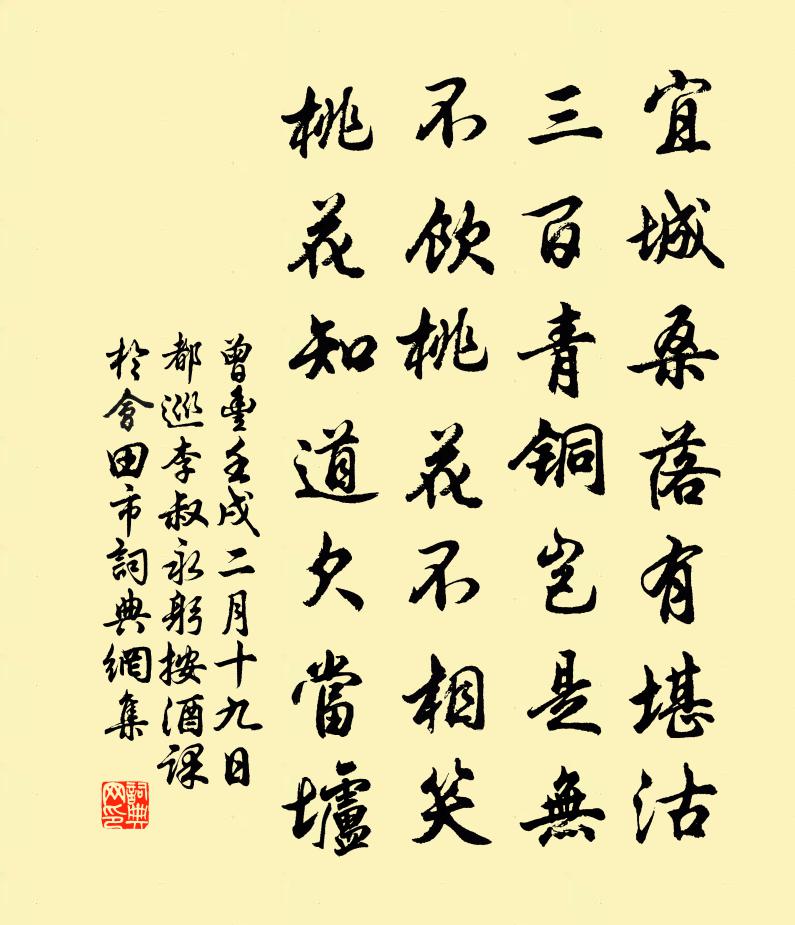 宜城桑落有堪沽
三百青铜岂是無
不饮桃花不相笑
桃花知道欠當壚
曾豐壬戌二月十九日
都巡李叔永躬按酒课
於會田市詞典網集
詞典网印